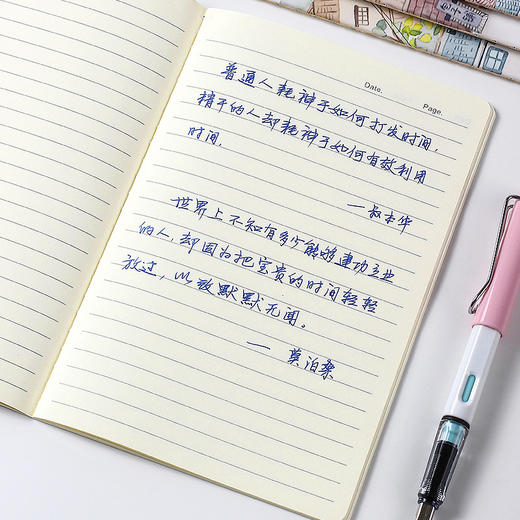 Date.
Page.
普通人耗神于如何打发时间,
精干的人却耗神于如何有效利用
时间.
一叔本华
世界上不知有多少能够建功立业
的人,却因为把宝贵的时间轻轻
放过,以致默默无闻。
一 莫泊桑